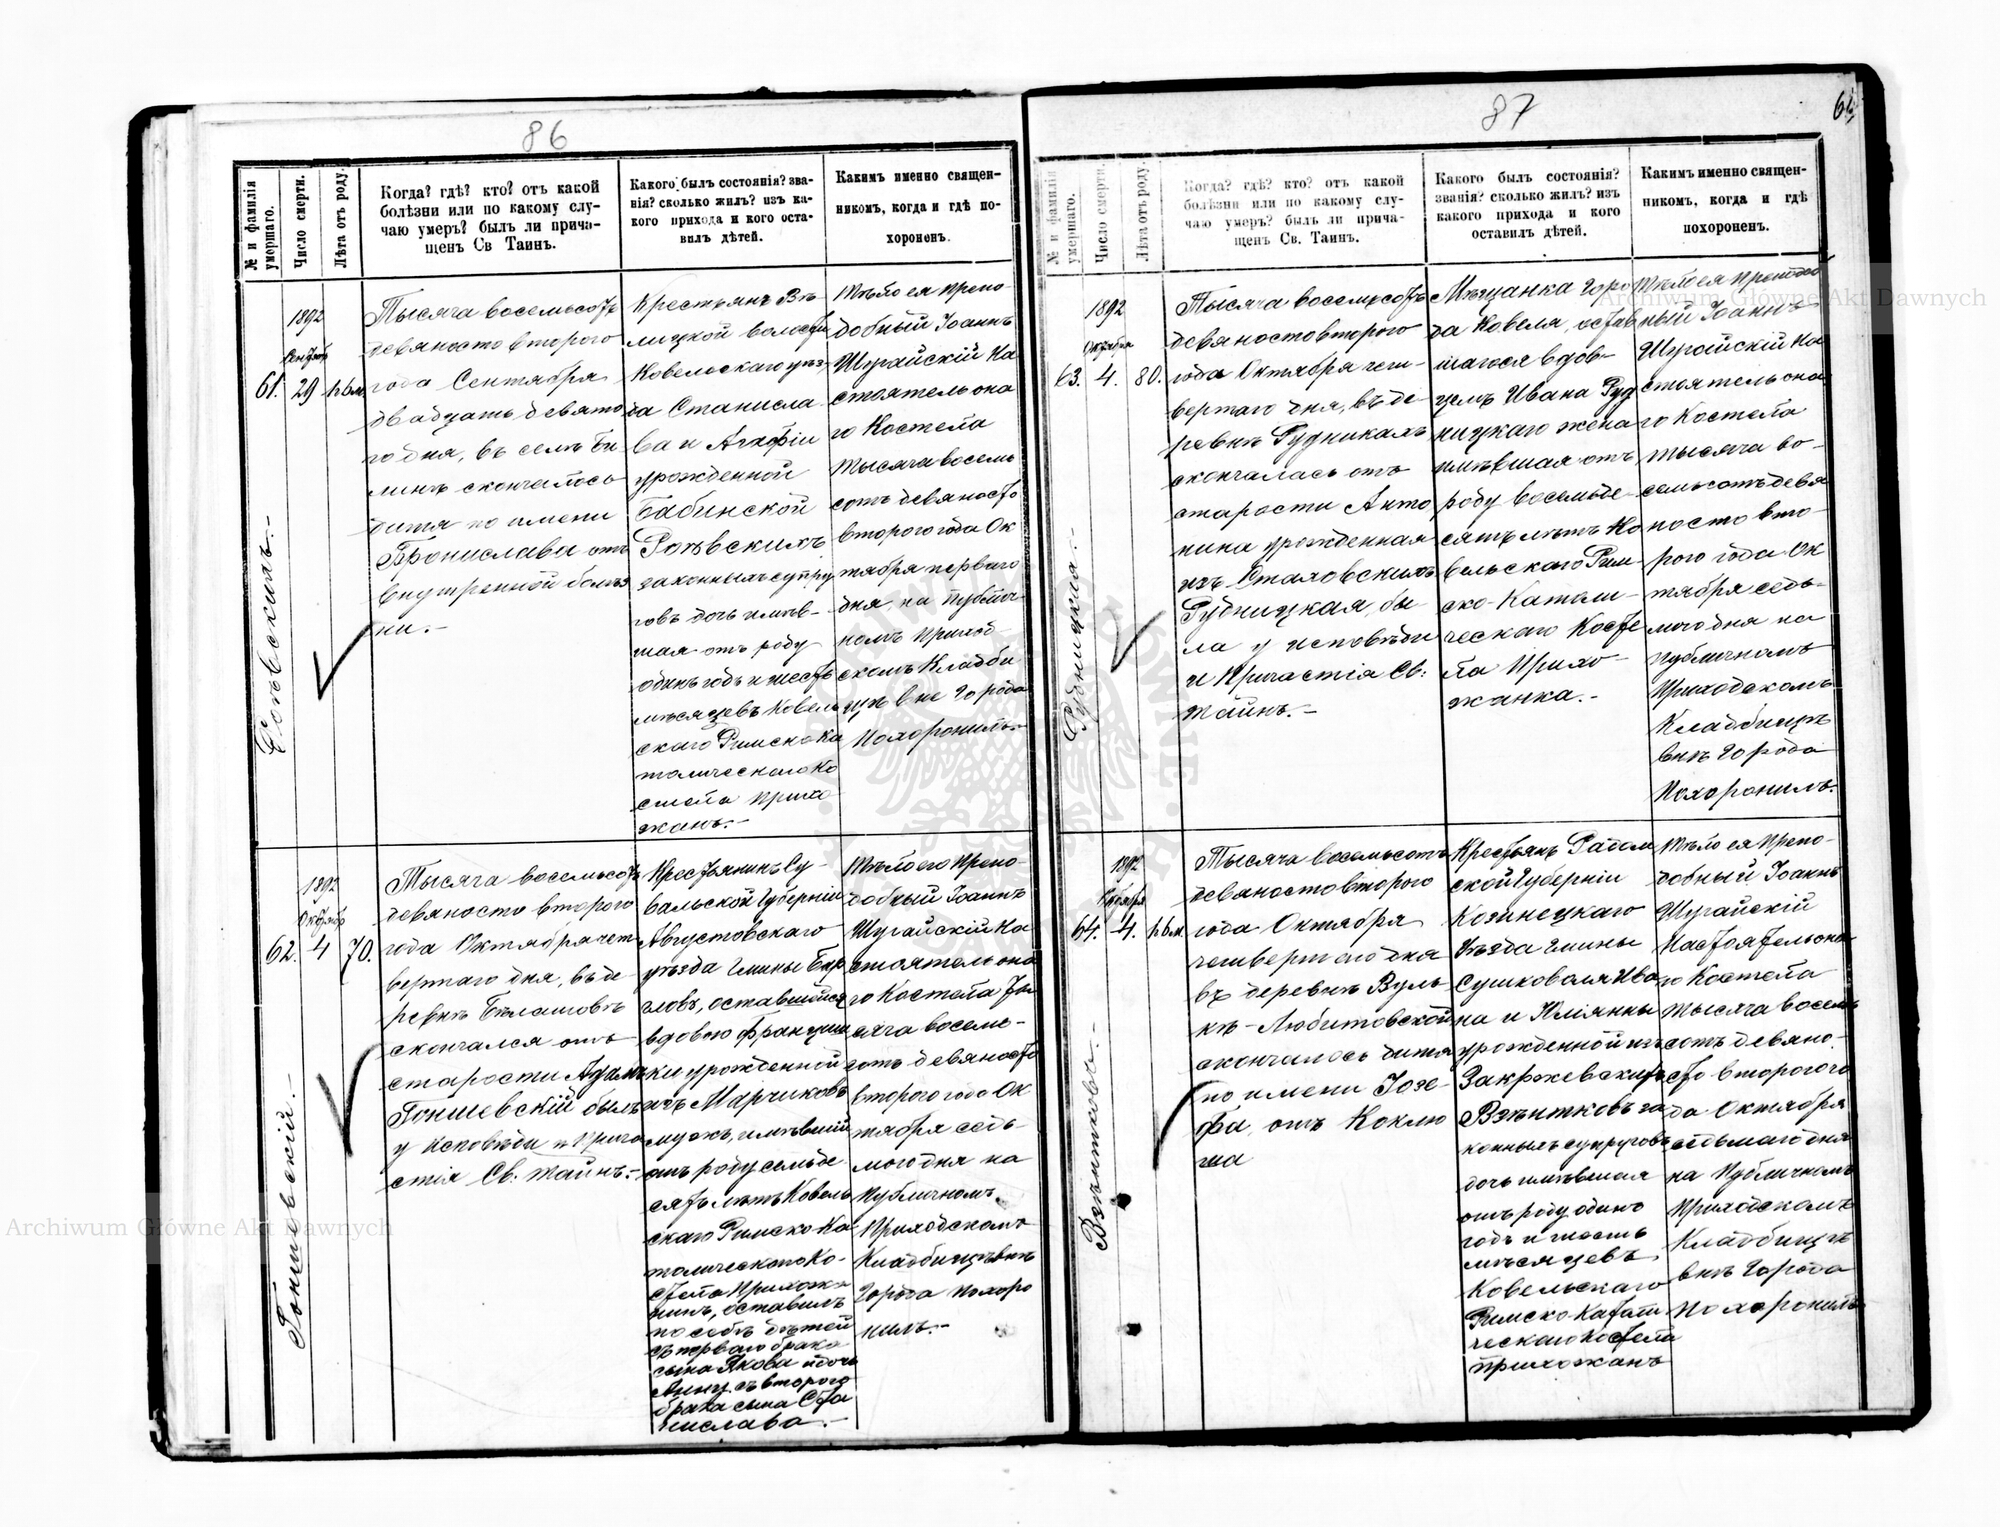 86
№ и фамилія умершаго.
Число смерти.
Лѣта отъ роду.
Когда? гдѣ? кто? отъ какой
болѣзни или по какому слу-
чаю умеръ? былъ ли прича-
щенъ Св Таинъ.
Какого былъ состоянія? зва-
нія? сколько жилъ? изъ ка-
кого прихода и кого оста-
вилъ дѣтей.
Какимъ именно священ-
никомъ, когда и гдѣ по-
хороненъ.
1892
61. 29
Тысяча восемьсотъ
девяносто второго
года Сентября
двадцать девято
го дня, въ селѣ Би
линѣ скончалось
дитя по имени
Бронислава отъ
внутренной болѣз
ни.-
Крестьянъ Вѣ-
лицкой волости
Ковельскаго уѣз-
да Станисла
ва и Агафіи
урожденной
Бабинской
законныхъ супру
говъ дочь имѣв-
шая отъ роду
одинъ годъ и шесть
мѣсяцевъ Ковель
скаго Римско Ка
толическаго Ко
стела прихо
жанъ.-
Тѣло ея Препо-
добный Іоаннъ
Шугайскій На
стоятель она
го Костела
тысяча восемь
сотъ девяносто
второго года Ок
тября перваго
дня, на публич-
номъ приход-
скомъ Кладби
щѣ внѣ города
похоронилъ.-
1892
Октября
62. 4 70.
Тысяча восемьсотъ
девяносто второго
года Октября чет
вертаго дня, въ де
ревнѣ Билашовѣ
скончался отъ
старости Адамъ
Гоншевскій былъ
у исповѣди и прича
стія Св. тайнъ.-
Гоншевскій.-
Крестьянинъ Су-
вальской Губерніи
Августовскаго
уѣзда Гмины Бар
гловъ, оставшійся
вдовою Францишки
урожденной
изъ Марчиковъ
мужъ, имѣвшій
отъ роду семьде
сятъ лѣтъ Ковель
скаго Римско Ка-
толическаго Ко-
стела Прихожа
нинъ, оставилъ
по себѣ дѣтей
съ перваго брака
сына Якова и дочь
Анну съ второго
брака сына Ста
нислава.-
Тѣло его Препо-
добный Іоаннъ
Шугайскій На
стоятель она
го Костела Ты
сяча восемь-
сотъ девяносто
второго года Ок
тября седь-
мого дня на
Публичномъ
Приходскомъ
Кладбищѣ внѣ
Города похоро
нилъ.-
87
№ и фамилія умершаго.
Число смерти.
Лѣта отъ роду.
Когда? гдѣ? кто? отъ какой
болѣзни или по какому слу-
чаю умеръ? былъ ли прича-
щенъ Св. Таинъ.
Какого былъ состоянія?
званія? сколько жилъ? изъ
какого прихода и кого
оставилъ дѣтей.
Какимъ именно священ-
никомъ, когда и гдѣ
похороненъ.
1892
Октября
63. 4. 80.
Тысяча восемьсотъ
девяносто второго
года Октября чет-
вертаго дня, въ де
ревнѣ Рудникахъ
скончалась отъ
старости Анто
нина урожденная
изъ Стаховскихъ
Рудницкая, бы-
ла у исповѣди
и Причастія Св.
Тайнъ.-
Рудницкая.-
Мѣщанка Горо
да Ковеля, остав
шагося вдов-
цемъ Ивана Руд
ницкаго жена
имѣвшая отъ
роду восемьде-
сятъ лѣтъ Ко
вельскаго Рим-
ско-Католи-
ческаго Косте
ла Прихо-
жанка.-
Тѣло ея Преподоб
ный Іоаннъ
Шугайскій На
стоятель она
го Костела
тысяча во-
семьсотъ девя
носто вто-
рого года Ок
тября седь-
мого дня на
публичномъ
Приходскомъ
Кладбищѣ
внѣ Города
похоронилъ.
1892
Октября
64. 4.
Тысяча восемьсотъ
девяносто второго
года Октября
четвертаго дня
въ деревнѣ Вуль
кѣ-Любитовской
скончалось дитя
по имени Іозе-
фа, отъ Коклю
ша
Крестьянъ Радом
ской Губерніи
Козинецкаго
Уѣзда Гмины
Сушковоля Ива
на и Юліанны
урожденной изъ
Закржевскихъ
законныхъ супруговъ
дочь имѣвшая
отъ роду одинъ
годъ и шесть
мѣсяцевъ,
Ковельскаго
Римско-Католи
ческаго Костела
прихожанъ
Тѣло ея Препо-
добный Іоаннъ
Шугайскій
Настоятель она
го Костела
тысяча восемь
сотъ девяно-
сто второго го
да Октября
седьмаго дня
на Публичномъ
Приходскомъ
Кладбищѣ
внѣ Города
похоронилъ
Archiwum Główne Akt Dawnych
Archiwum Główne Akt Dawnych